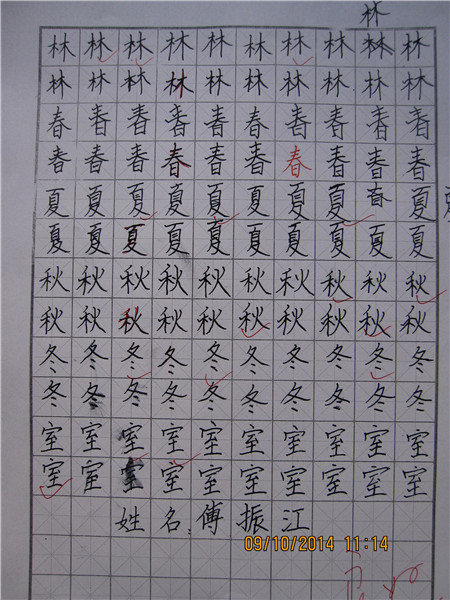 林
林林林林林林林林林林
林林林林林林林林林林
春春春春春春春春春春
春春春春春春春春春春
夏夏夏夏夏夏夏夏夏
夏夏夏夏夏夏夏夏夏夏
秋秋秋秋秋秋秋秋秋秋
秋秋秋秋秋秋秋秋秋秋
冬冬冬冬冬冬冬冬冬冬
冬冬冬冬冬冬冬冬冬冬
室室室室室室室室室室
室室室室室室室室室室
姓名:傅振江
09/10/2014 11:14